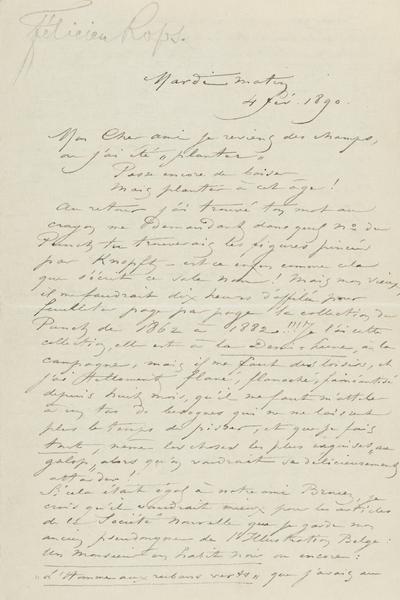 Félicien Rops.
Mardi matin
4 fév. 1890.
Mon Cher ami je reviens des champs,
où j'ai été „planter„
Passe encore de baiser
Mais planter à cet âge !
Au retour j'ai trouvé ton mot au
crayon me demandant dans quel No du
Punch tu trouverais les figures
par Knopff – est ce enfin comme cela
que s'écrit ce sale nom ! Mais mon vieux,
il me faudrait dix heures d'affilée pour
feuilleter page par page la collection du
Punch de 1862 à 1882 !!!! Je l'ai cette
collection, elle est à la Demi-Lune, à la
campagne, mais il me faut des loisirs, et
j'ai tellement flâné, flanoché, fainéantisé
depuis huit mois, qu'il me faut m'atteler
à un tas de besognes qui ne me laissent
plus le temps de pisser, et que je fais
tout, même les choses les plus exquises „au
galop„ alors qu'on voudrait se délicieusement
attarder.
Si cela était égal à notre ami Brouez, je
crois qu'il vaudrait mieux pour les articles
de la Société Nouvelle que je garde mon
ancien pseudonyme de l'Illustration Belge :
Un Monsieur en habit noir ou encore :
„L'Homme aux rubans verts„ que j'avais au